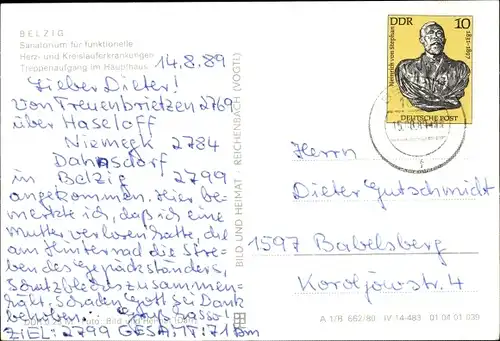 BELZIG
Sanatorium für funktionelle
Herz- und Kreislauferkrankungen
Treppenaufgang im Haupthaus
14.8.89
Lieber Dieter!
Von Treuenbrietzen 2769
über Haseloff
Niemegk 2784
Dahnsdorf
in Belzig 2799
angekommen. Hier be-
merkte ich, daß ich eine
Mutter verloren hatte, die
am Hinterrad die Stre-
ben des Gepäckständers,
Schutzbleches zusammen-
hält. Schaden Gott sei Dank
behoben. Gruß Lasso!
ZIEL: 2799 GESAMT: 71 km
BILD UND HEIMAT · REICHENBACH (VOGTL)
DDR 10
Heinrich von Stephan
1831-1897
DEUTSCHE POST
Herrn
Dieter Gutschmidt
1597 Babelsberg
Karoljowstr. 4
A 1/B 662/89 IV-14-483 01 04 01 039